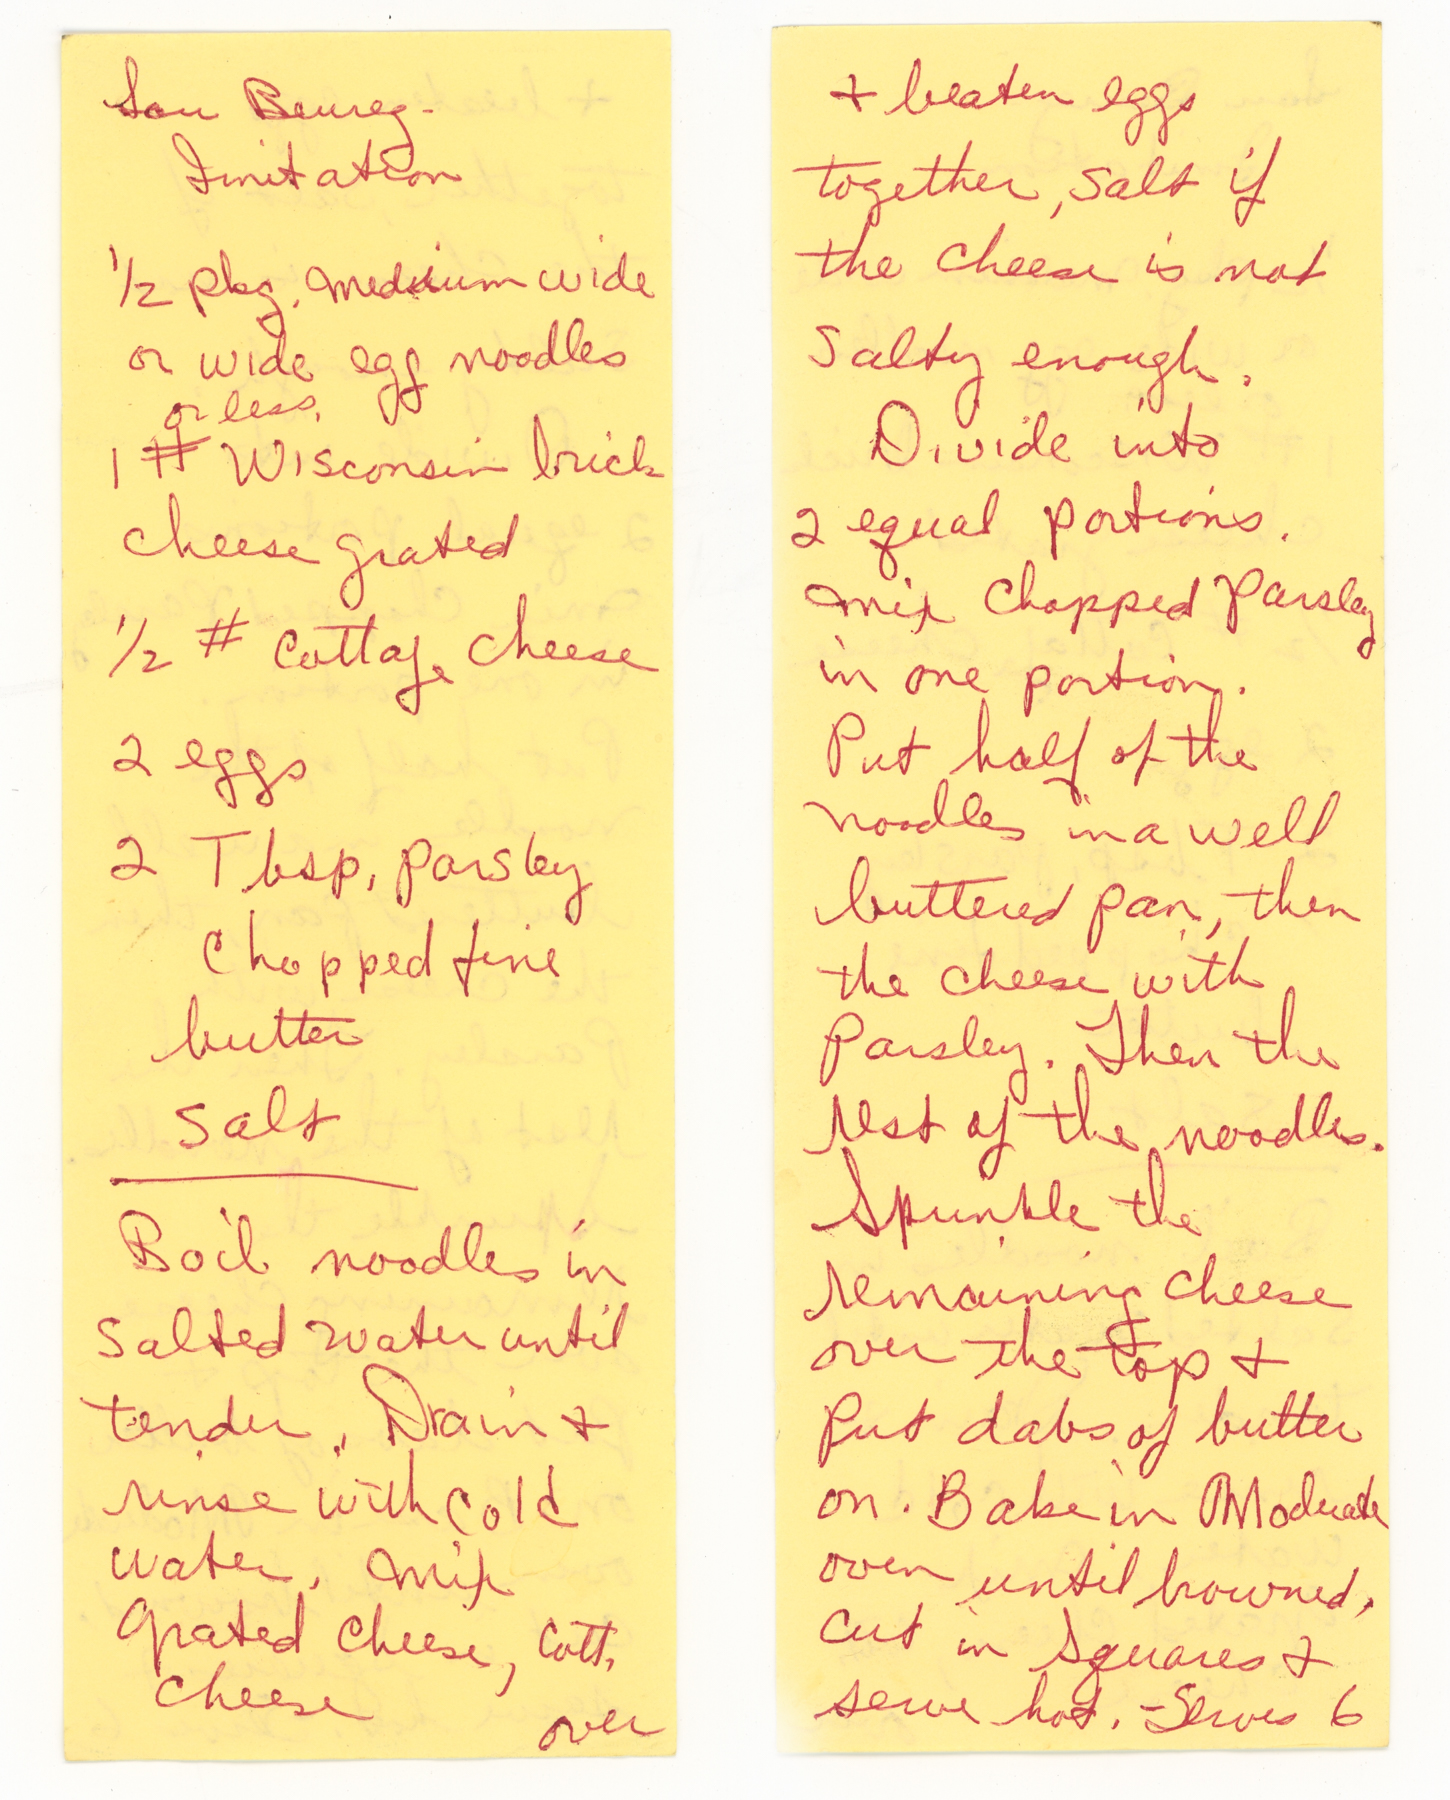 Sou Beureg-
Imitation
1/2 pkg. medium wide
or wide egg noodles
or less.
1 # Wisconsin brick
cheese grated
1/2 # Cottage cheese
2 eggs
2 Tbsp. parsley
chopped fine
butter
salt
Boil noodles in
salted water until
tender. Drain +
rinse with cold
water. Mix
grated cheese, cott.
cheese
over
+ beaten eggs
together, salt if
the cheese is not
salty enough.
Divide into
2 equal portions.
Mix chopped parsley
in one portion.
Put half of the
noodles in a well
buttered pan, then
the cheese with
parsley. Then the
rest of the noodles.
Sprinkle the
remaining cheese
over the top +
put dabs of butter
on. Bake in Moderate
oven until browned.
Cut in squares &
serve hot. - Serves 6